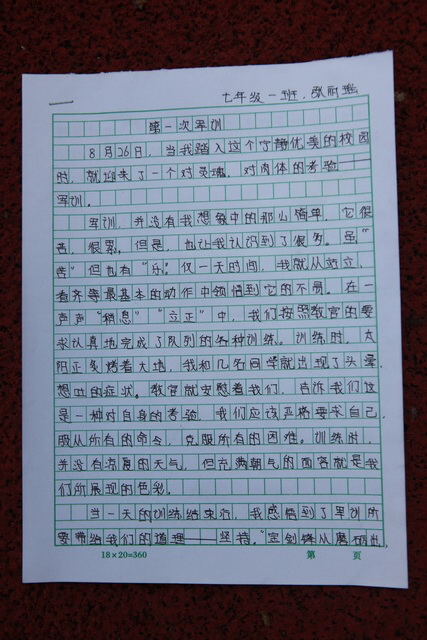 一
七年级一班.张雨瑶
第一次军训
8月26日，当我踏入这个宁静优美的校园
时，就迎来了一个对灵魂，对肉体的考验——
军训。
军训，并没有我想象中的那么简单。它很
苦，很累，但是，也让我认识到了很多。虽"
苦"但也有"乐"。仅一天时间，我就从站立、
看齐等最基本的动作中领悟到它的不易。在一
声声"稍息""立正"中，我们按照教官的要
求认真地完成了队列的各种训练。训练时，太
阳正炙烤着大地，我和几名同学就出现了头晕
想吐的症状。教官就安慰着我们，告诉我们这
是一种对自身的考验，我们应该严格要求自己，
服从所有的命令，克服所有的困难。训练时，
并没有凉爽的天气，但充满朝气的面容就是我
们所展现的色彩。
当一天的训练结束后，我感悟到了军训所
要带给我们的道理——坚持。"宝剑锋从磨砺出，
18×20=360
第 页